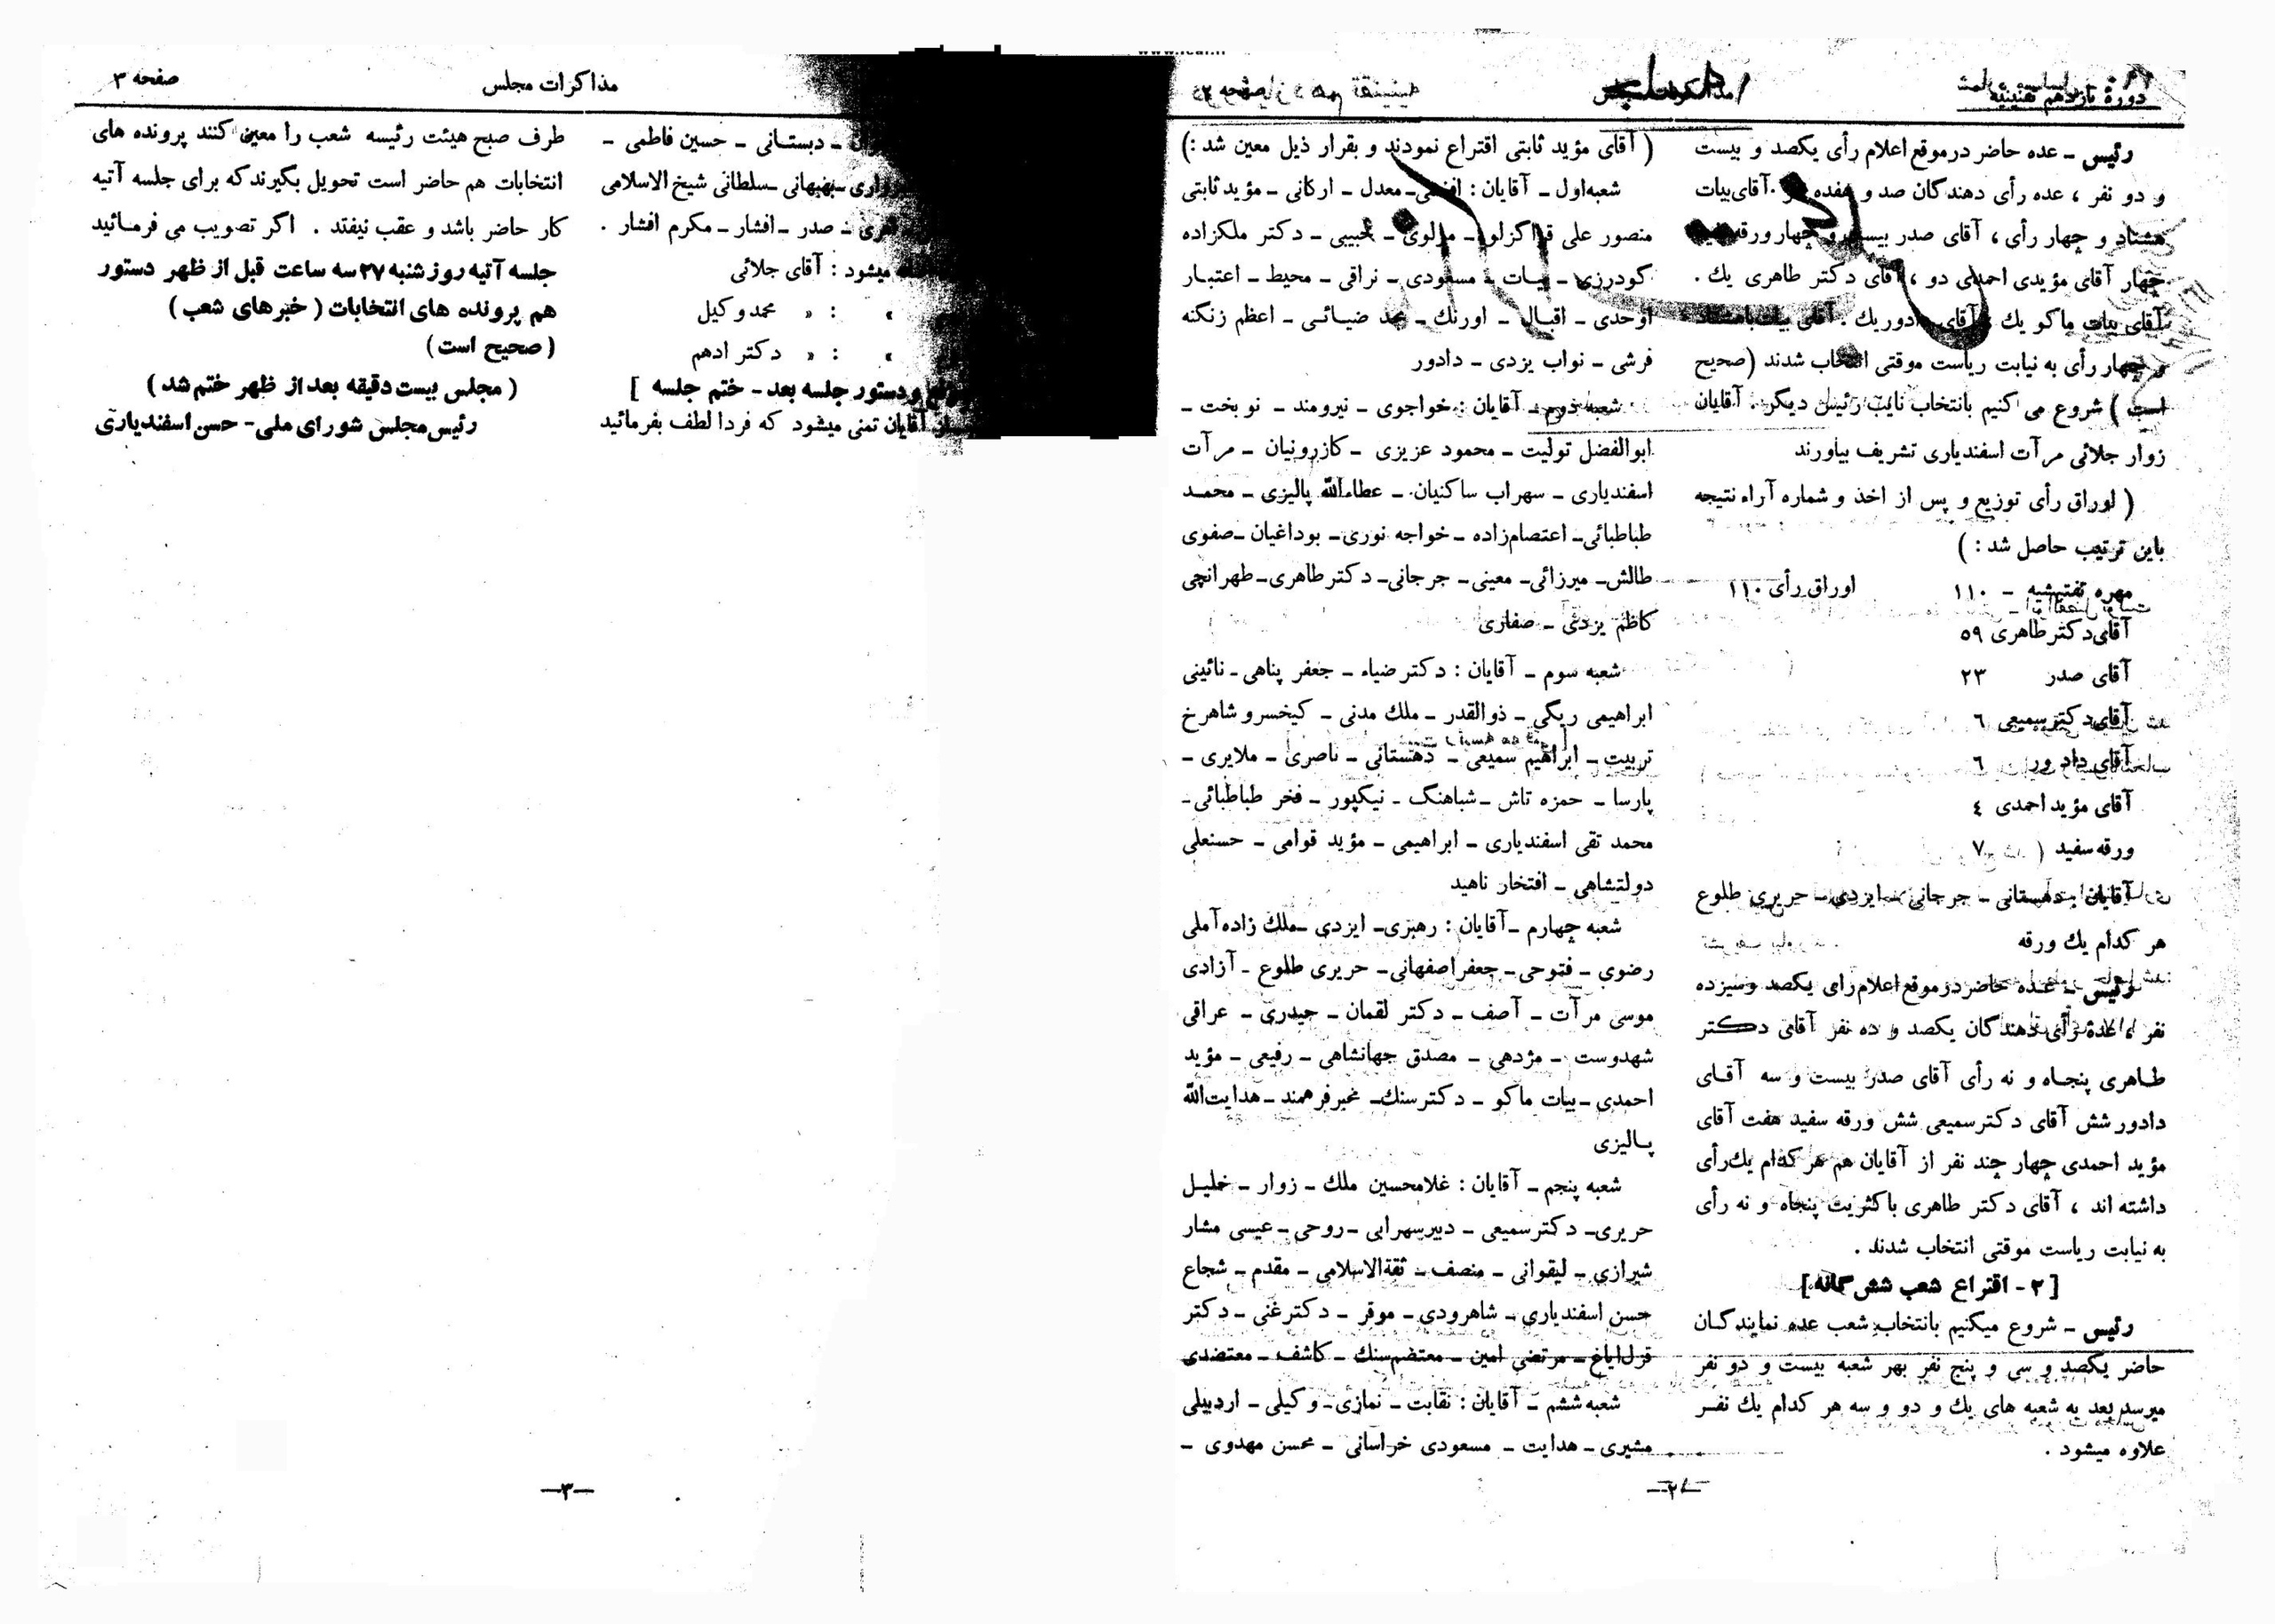 دورهٔ یازدهم تقنینیه
مذاکرات مجلس
صفحه ۲
رئیس ـ عده حاضر درموقع اعلام رأی یکصد و بیست
و دو نفر ، عده رأی دهندگان صد و هفده آقای بیات
هشتاد و چهار رأی ، آقای صدر بیست و چهار ورقه
چهار آقای مؤیدی احمدی دو ، آقای دکتر طاهری یك .
آقای بیات ماکو یك آقای دادور یك . آقای بیات باهشتاد
و چهار رأی به نیابت ریاست موقتی انتخاب شدند (صحیح
است ) شروع می کنیم بانتخاب نایب رئیس دیگر . آقایان
زوار جلائی مرآت اسفندیاری تشریف بیاورند
( اوراق رأی توزیع و پس از اخذ و شماره آراء نتیجه
باین ترتیب حاصل شد : )
مهره تفتیشیه ـ ۱۱۰ اوراق رأی ۱۱۰
آقای دکتر طاهری ۵۹
آقای صدر ۲۳
آقای دکتر سمیعی ٦
آقای داد ور ٦
آقای مؤید احمدی ٤
ورقه سفید ۷
آقایان : دهستانی ـ جرجانی ـ ایزدی ـ حریری طلوع
هر کدام یك ورقه
رئیس ـ عده حاضر درموقع اعلام رای یکصد وسیزده
نفر ، عدهٔ رأی دهندگان یکصد و ده نفر آقای دکتر
طاهری پنجاه و نه رأی آقای صدر بیست و سه آقای
دادور شش آقای دکتر سمیعی شش ورقه سفید هفت آقای
مؤید احمدی چهار چند نفر از آقایان هم هر کدام یك رأی
داشته اند ، آقای دکتر طاهری باکثریت پنجاه و نه رأی
به نیابت ریاست موقتی انتخاب شدند .
[ ۲ - اقتراع شعب شش گانه ]
رئیس ـ شروع میکنیم بانتخاب شعب عده نمایندگان
حاضر یکصد و سی و پنج نفر بهر شعبه بیست و دو نفر
میرسد بعد به شعبه های یك و دو و سه هر کدام یك نفر
علاوه میشود .
( آقای مؤید ثابتی اقتراع نمودند و بقرار ذیل معین شد : )
شعبه اول ـ آقایان : معدل ـ ارکانی ـ مؤید ثابتی
منصور علی قراگزلو ـ مولوی ـ حبیبی ـ دکتر ملکزاده
گودرزی ـ بیات ـ مسعودی ـ نراقی ـ محیط ـ اعتبار
اوحدی ـ اقبال ـ اورنك ـ ضیائی ـ اعظم زنگنه
فرشی ـ نواب یزدی ـ دادور
شعبه دوم ـ آقایان : خواجوی ـ نیرومند ـ نوبخت ـ
ابوالفضل تولیت ـ محمود عزیزی ـ کازرونیان ـ مرآت
اسفندیاری ـ سهراب ساکنیان ـ عطاءالله پالیزی ـ محمد
طباطبائی ـ اعتصام زاده ـ خواجه نوری ـ بوداغیان ـ صفوی
طالش ـ میرزائی ـ معینی ـ جرجانی ـ دکتر طاهری ـ طهرانچی
کاظم یزدی ـ صفاری
شعبه سوم ـ آقایان : دکتر ضیاء ـ جعفر پناهی ـ نائینی
ابراهیمی ریگی ـ ذوالقدر ـ ملك مدنی ـ کیخسرو شاهرخ
تربیت ـ ابراهیم سمیعی ـ دهستانی ـ ناصری ـ ملایری ـ
پارسا ـ حمزه تاش ـ شباهنگ ـ نیکپور ـ فخر طباطبائی ـ
محمد تقی اسفندیاری ـ ابراهیمی ـ مؤید قوامی ـ حسنعلی
دولتشاهی ـ افتخار ناهید
شعبه چهارم ـ آقایان : رهبری ـ ایزدی ـ ملك زاده آملی
رضوی ـ فتوحی ـ جعفر اصفهانی ـ حریری طلوع ـ آزادی
موسی مرآت ـ آصف ـ دکتر لقمان ـ حیدری ـ عراقی
شهدوست ـ مژدهی ـ مصدق جهانشاهی ـ رفیعی ـ مؤید
احمدی ـ بیات ماکو ـ دکتر سنك ـ مخبر فرهمند ـ هدایت الله
پالیزی
شعبه پنجم ـ آقایان : غلامحسین ملك ـ زوار ـ خلیل
حریری ـ دکتر سمیعی ـ دبیر سهرابی ـ روحی ـ عیسی مشار
شیرازی ـ لیقوانی ـ منصف ـ ثقةالاسلامی ـ مقدم ـ شجاع
حسن اسفندیاری ـ شاهرودی ـ موقر ـ دکتر غنی ـ دکتر
قزل ایاغ ـ مرتضی امین ـ معتضم سنك ـ کاشف ـ معتضدی
شعبه ششم ـ آقایان : نقابت ـ نمازی ـ وکیلی ـ اردبیلی
مشیری ـ هدایت ـ مسعودی خراسانی ـ محسن مهدوی ـ
ـ۲ـ
مذاکرات مجلس
صفحه ۳
ـ دبستانی ـ حسین فاطمی ـ
ـ بهبهانی ـ سلطانی شیخ الاسلامی
ـ صدر ـ افشار ـ مکرم افشار .
میشود : آقای جلائی
» : » محمد وکیل
» : » دکتر ادهم
و دستور جلسه بعد ـ ختم جلسه ]
آقایان تمنی میشود که فردا لطف بفرمائید
طرف صبح هیئت رئیسه شعب را معین کنند پرونده های
انتخابات هم حاضر است تحویل بگیرند که برای جلسه آتیه
کار حاضر باشد و عقب نیفتد . اگر تصویب می فرمائید
جلسه آتیه روز شنبه ۲۷ سه ساعت قبل از ظهر دستور
هم پرونده های انتخابات ( خبرهای شعب )
( صحیح است )
( مجلس بیست دقیقه بعد از ظهر ختم شد )
رئیس مجلس شورای ملی - حسن اسفندیاری
ـ۳ـ